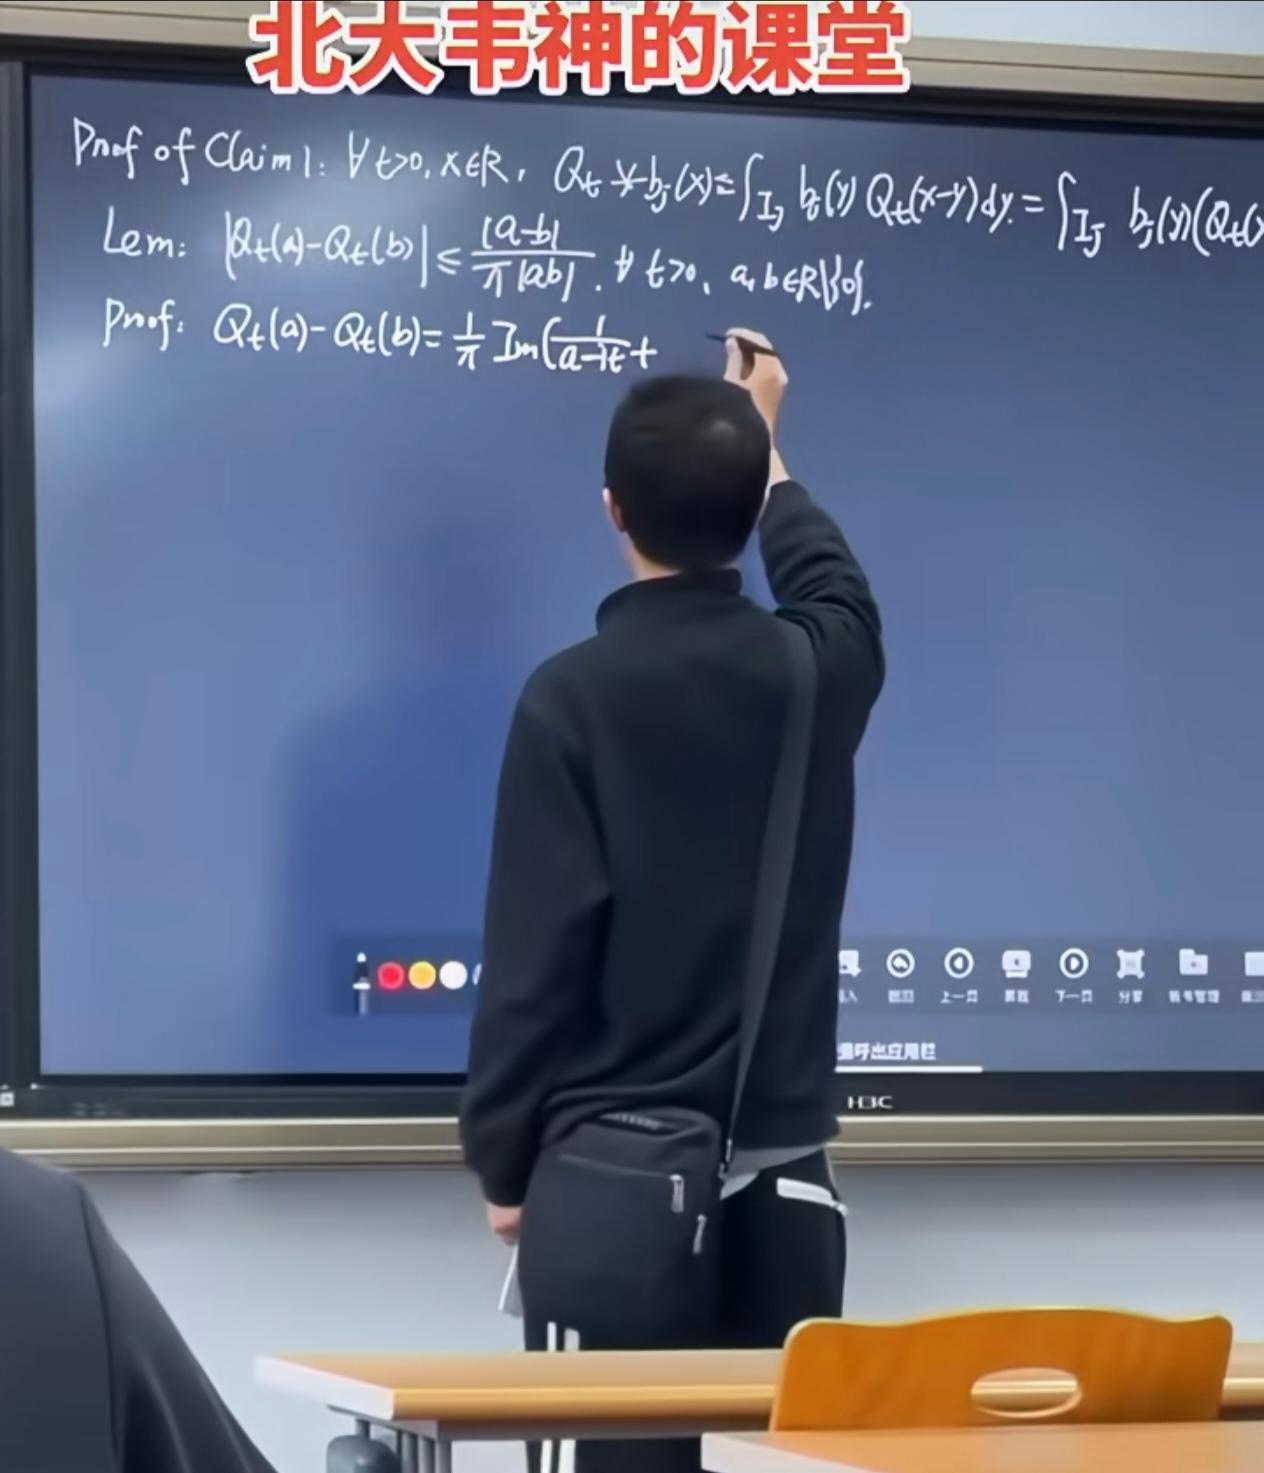 北大韦神的课堂
Proof of Claim 1: ∀ t>0, x∈R, Q_t * b_j(x) = ∫_{I_j} b_j(y) Q_t(x-y) dy. = ∫_{I_j} b_j(y)(Q_t(x
Lem: |Q_t(a)-Q_t(b)| ≤ |a-b| / π|ab|. ∀ t>0, a,b∈R\{0}.
Proof: Q_t(a)-Q_t(b) = 1/π Im(1/(a-it) +
上一页 下一页 分享
呼出应用栏
H3C